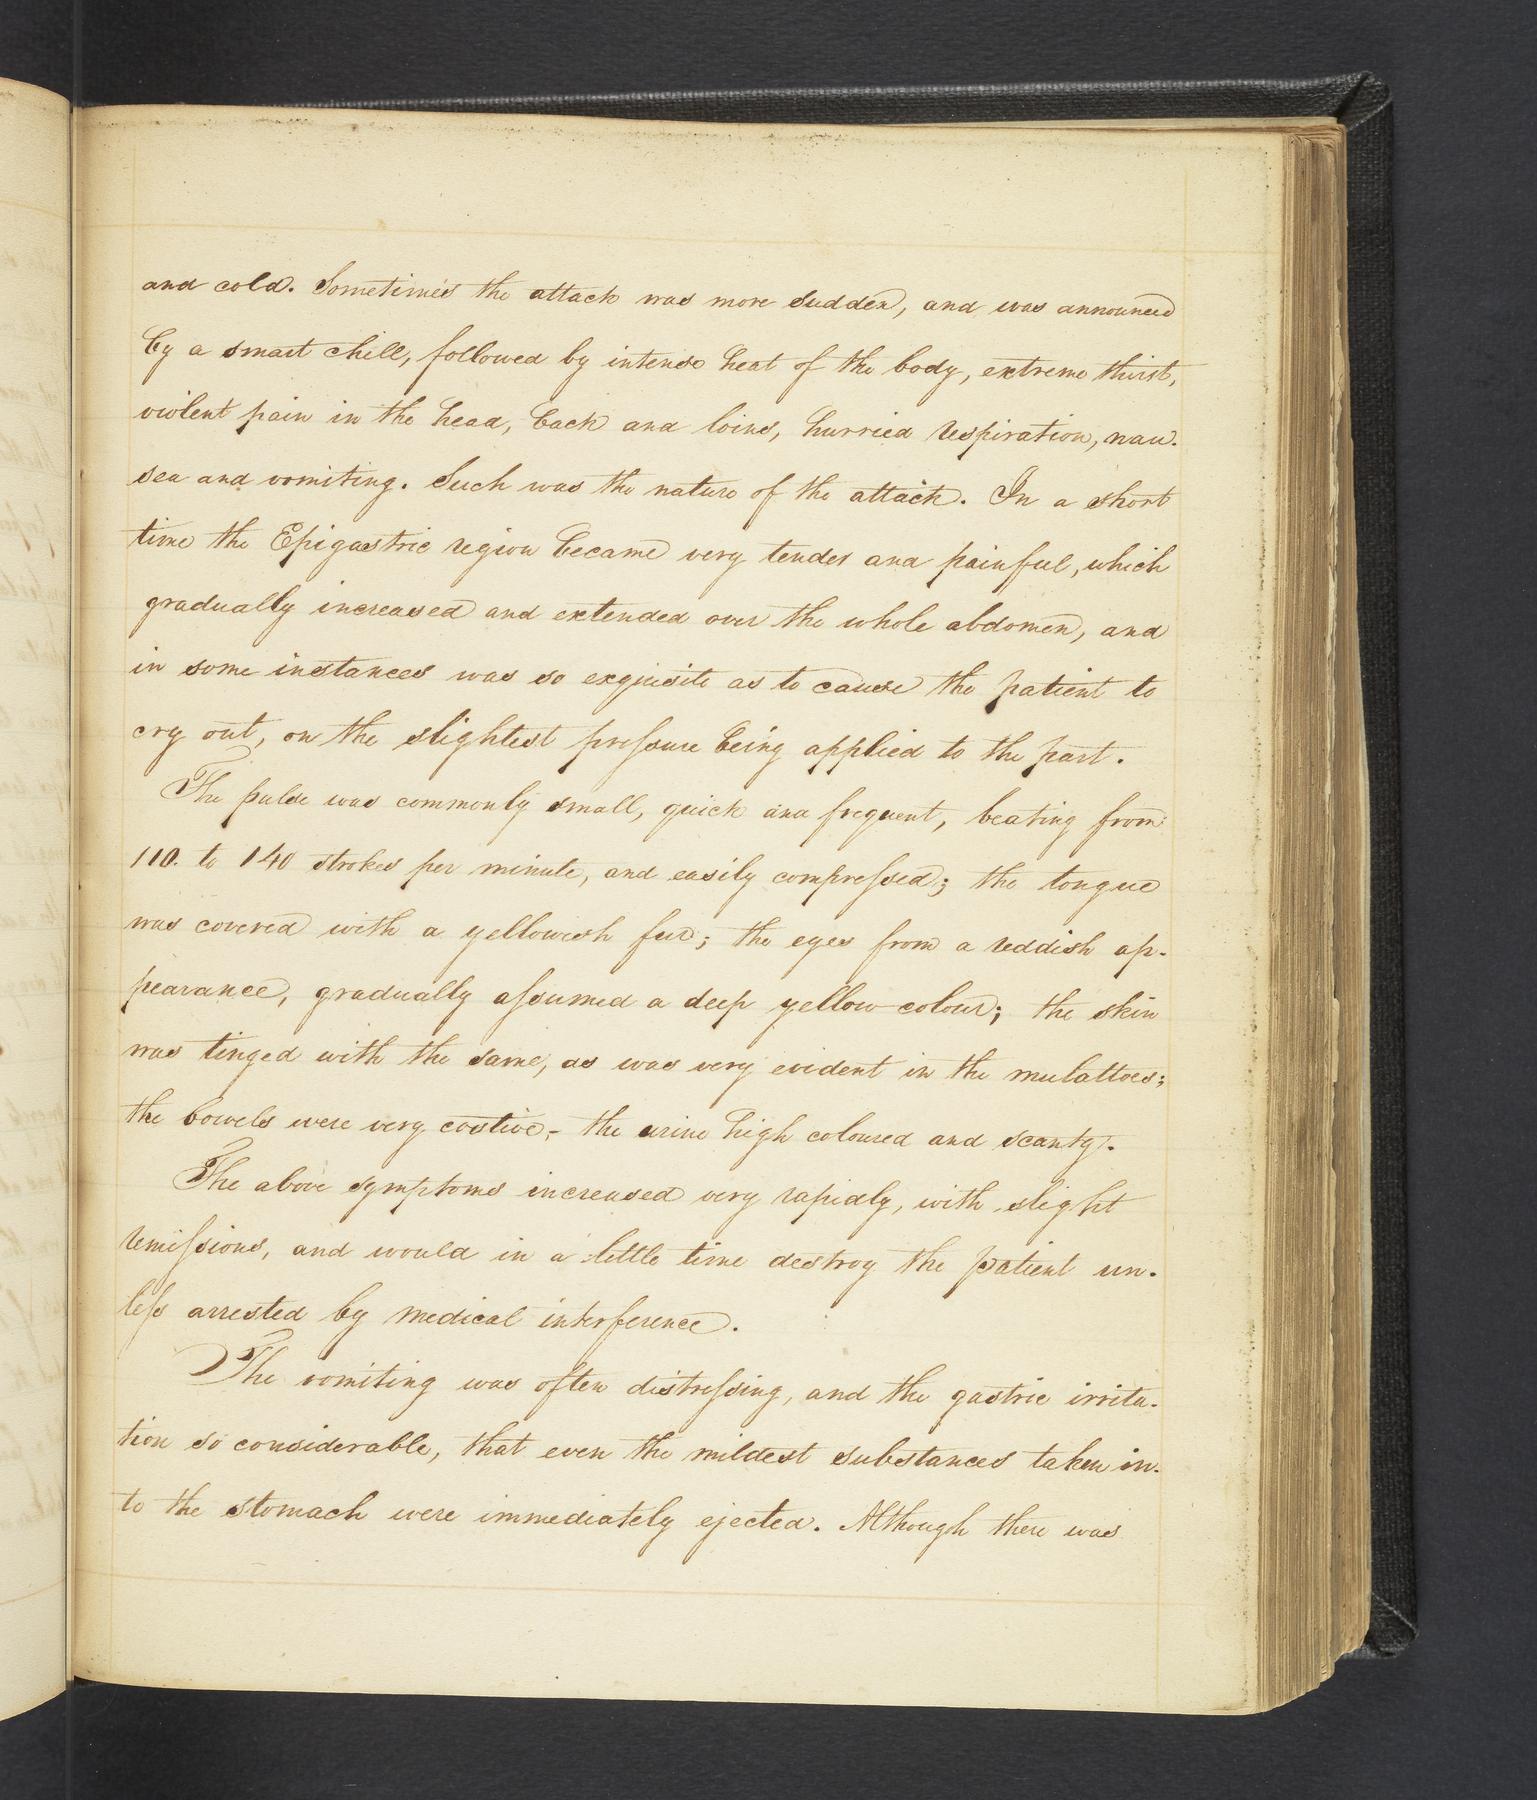 and cold. Sometimes the attack was more sudden, and was announced
by a smart chill, followed by intense heat of the body, extreme thirst,
violent pain in the head, back and loins, hurried respiration, nau-
sea and vomiting. Such was the nature of the attack. In a short
time the Epigastric region became very tender and painful, which
gradually increased and extended over the whole abdomen, and
in some instances was so exquisite as to cause the patient to
cry out, on the slightest preſsure being applied to the part.
The pulse was commonly small, quick and frequent, beating from
110. to 140 strokes per minute, and easily compreſsed; the tongue
was covered with a yellowish fur; the eyes from a reddish ap-
pearance, gradually aſsumed a deep yellow colour; the skin
was tinged with the same, as was very evident in the mulattoes;
the bowels were very costive,- the urine high coloured and scanty.
The above symptoms increased very rapidly, with slight
remiſsions, and would in a little time destroy the patient un-
leſs arrested by medical interference.
The vomiting was often distreſsing, and the gastric irrita-
tion so considerable, that even the mildest substances taken in-
to the stomach were immediately ejected. Although there was